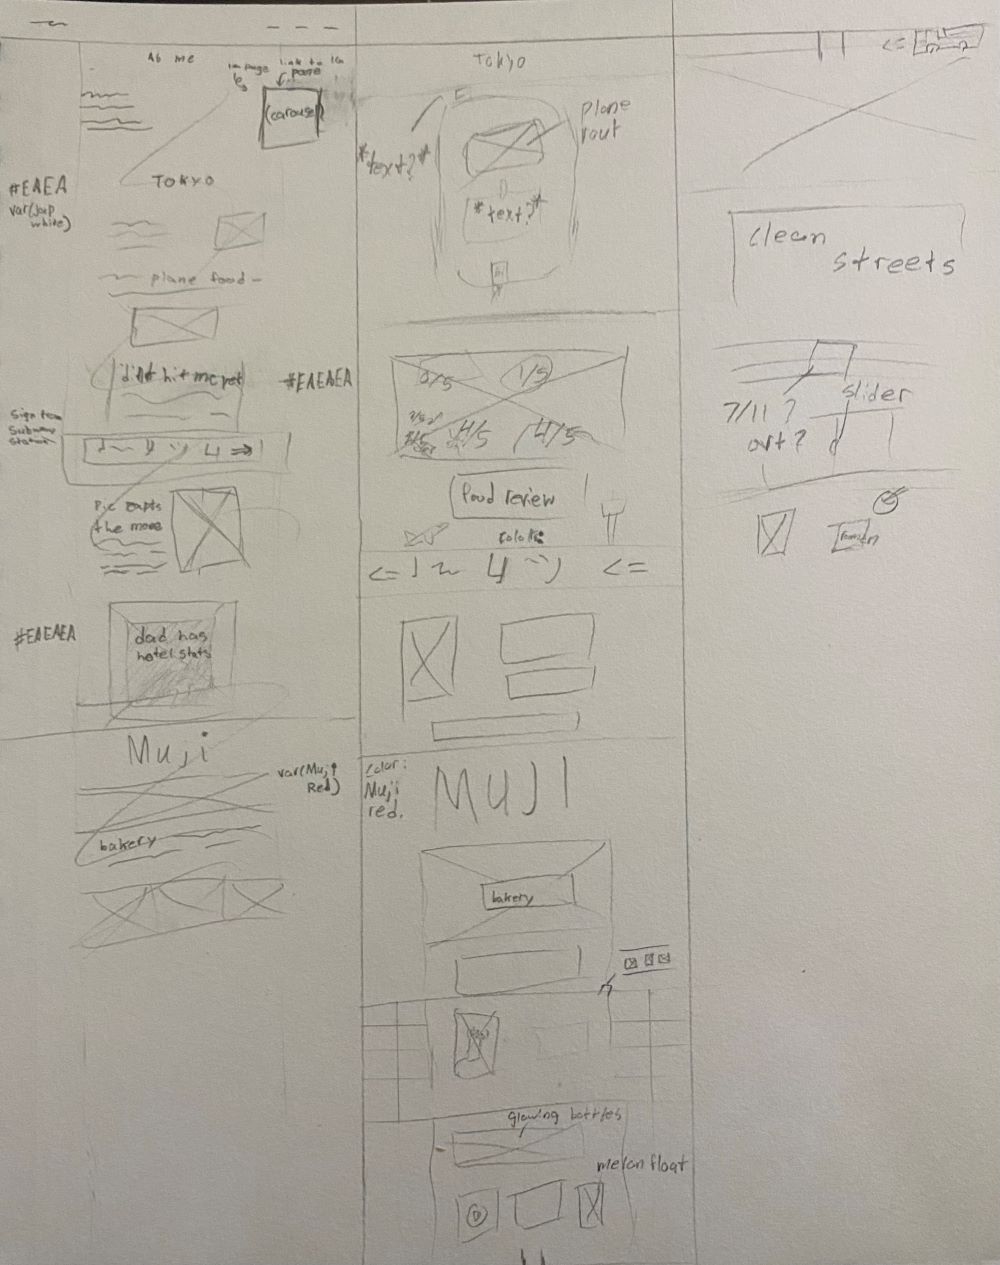 Ab me
link to
page
carousel
#EAEA
var(Jap
white)
TOKYO
plane food
#EAEAEA
Sign from
Subway
Station
4 ⇒
Pic capts
the move
#EAEAEA
dad has
hotel stats
Muji
var(Muji
Red)
bakery
Tokyo
plane
rout
*text?*
*text?*
1/5
4/5
4/5
food review
<=
4
<=
color:
Muji
red.
MUJI
bakery
glowing bottles
melon float
<=
clean
streets
7/11 ?
art?
slider